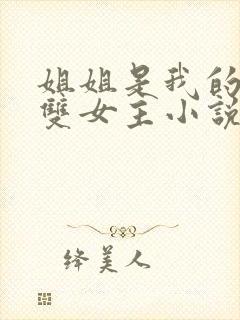 姐姐是我的
雙女主小說
絳美人